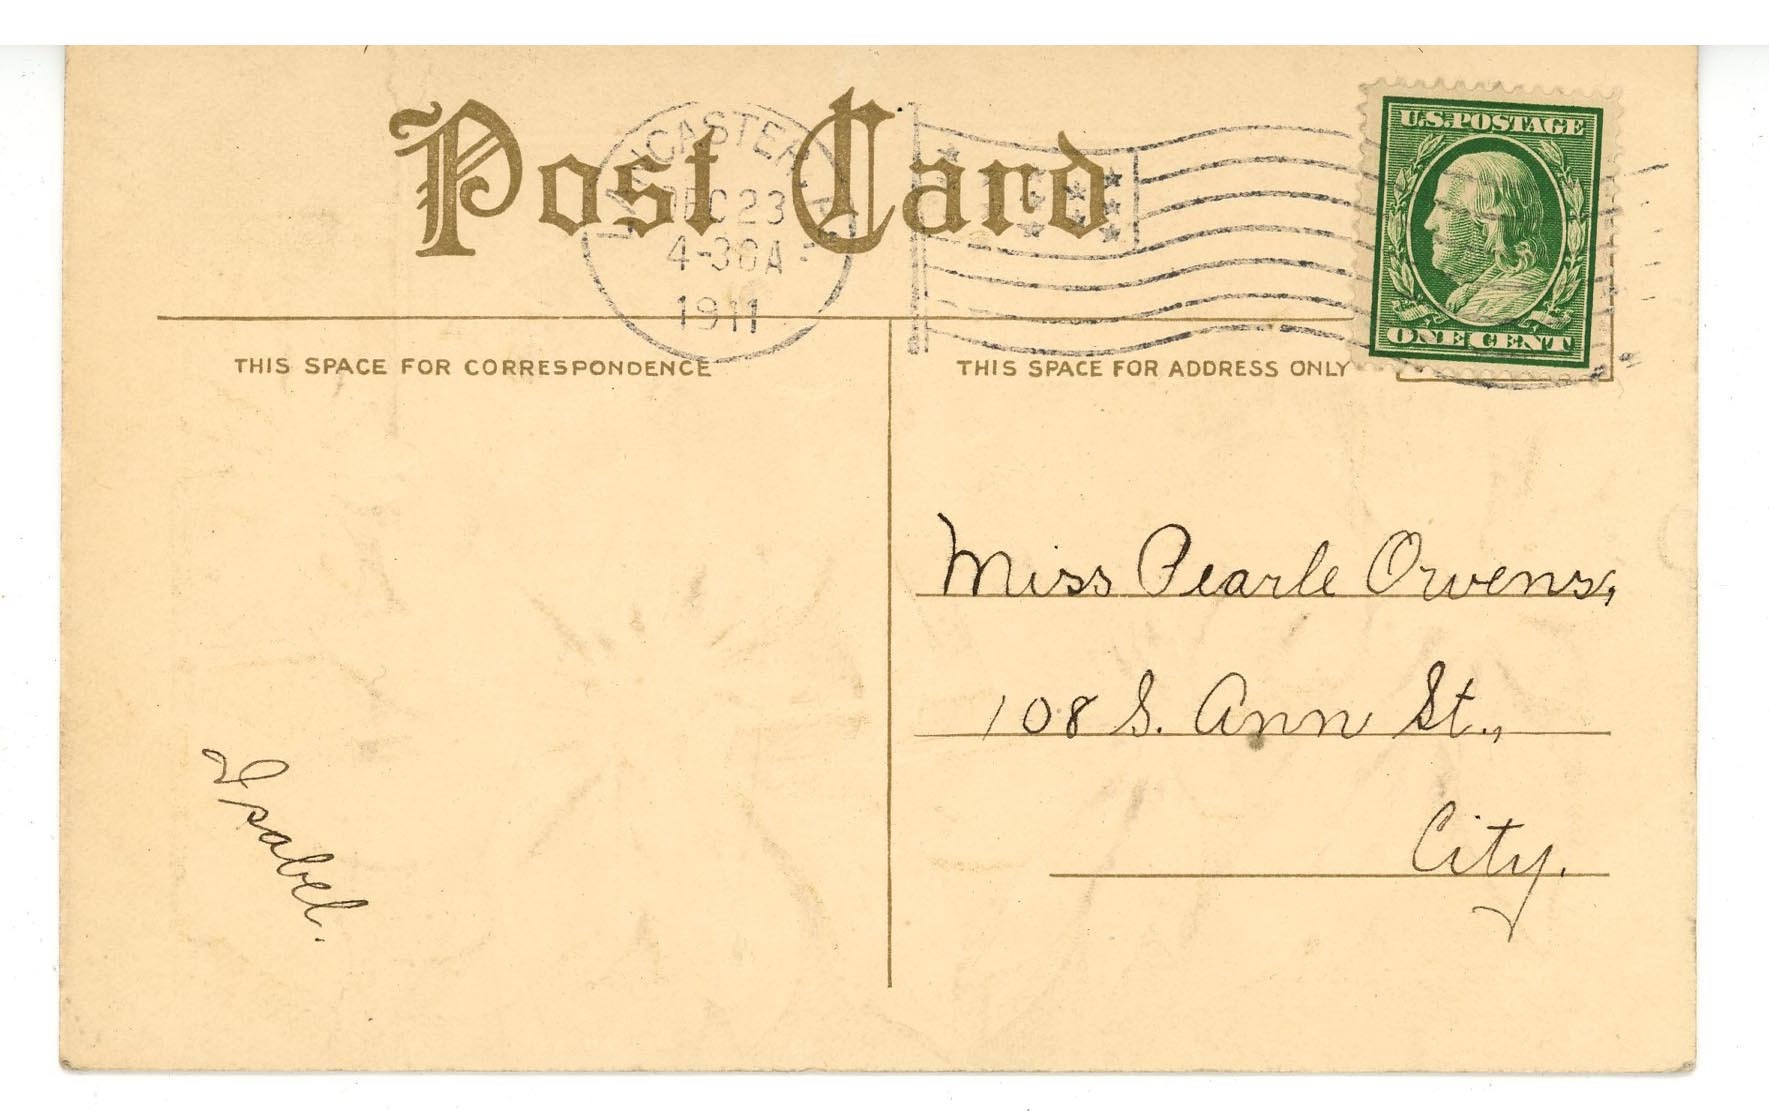 Post Card
LANCASTER, PA.
DEC 23
4-30A
1911
U.S. POSTAGE
ONE CENT
THIS SPACE FOR CORRESPONDENCE
THIS SPACE FOR ADDRESS ONLY
Miss Pearle Owens,
108 S. Ann St.,
City.
Isabel.